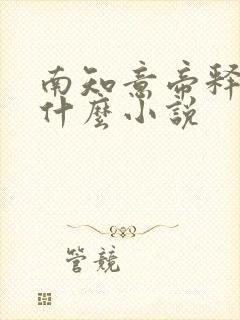 南知意帝释
什麼小说
管竞